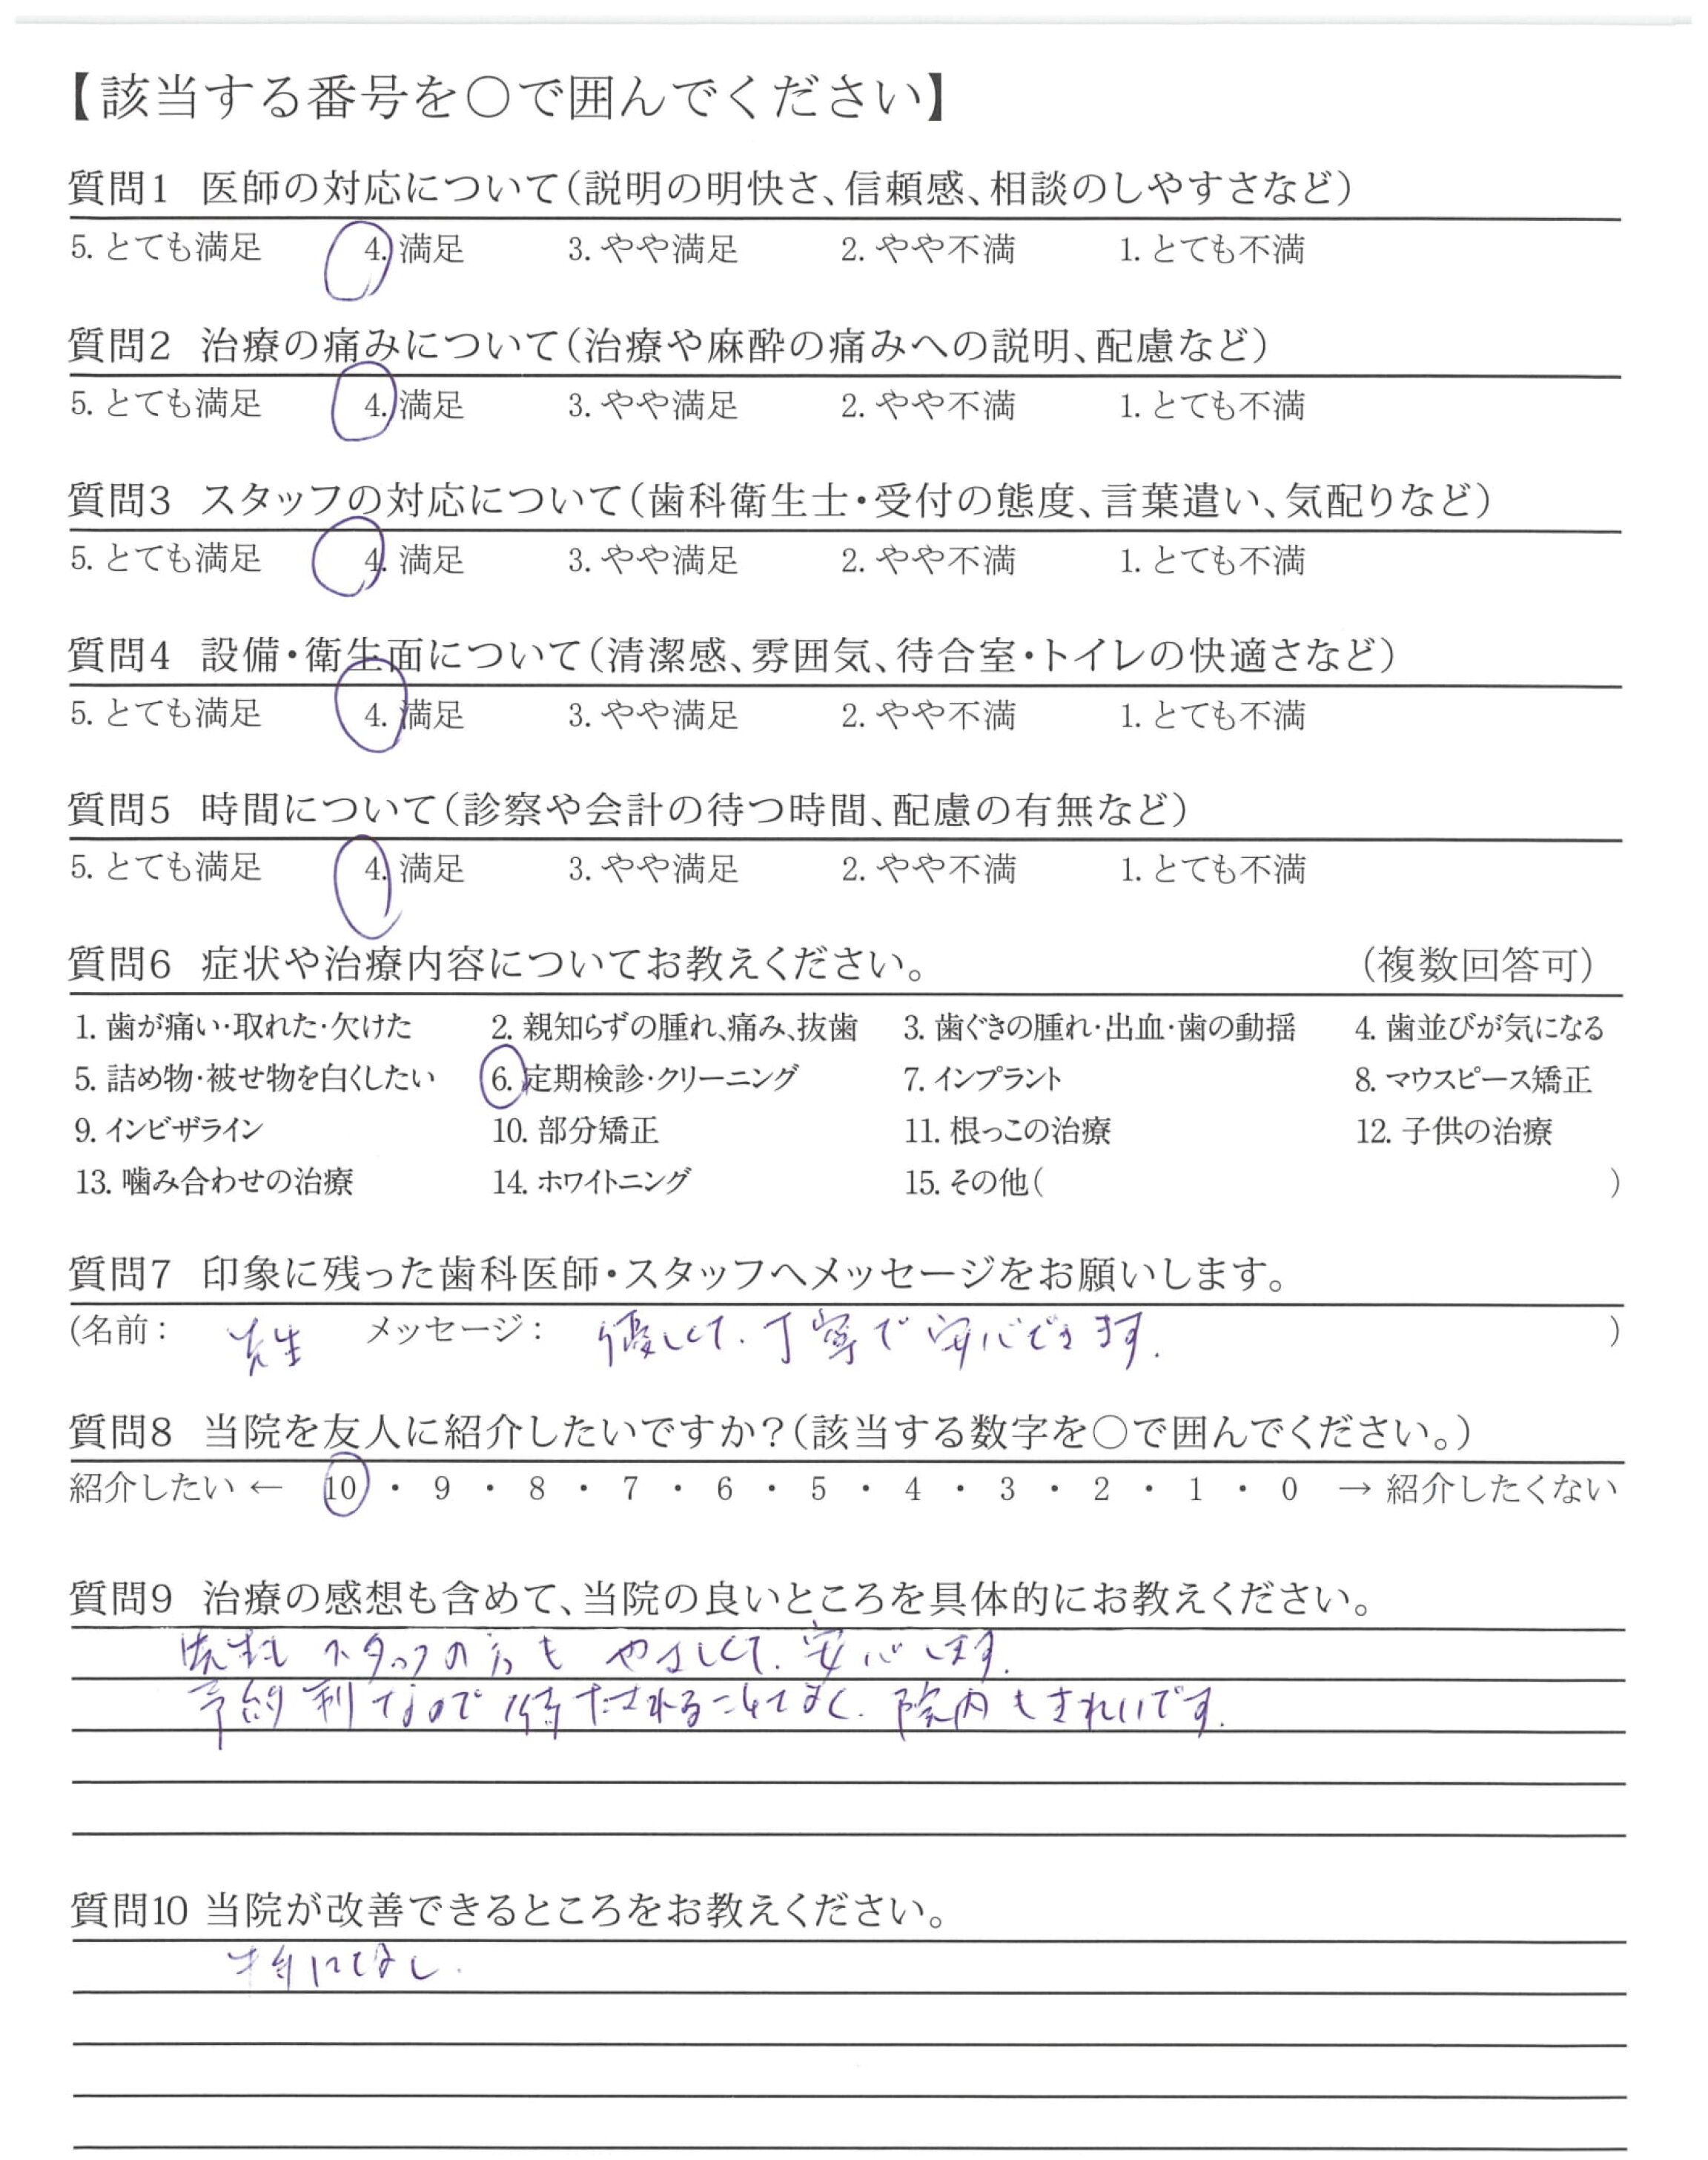 【該当する番号を○で囲んでください】
質問1 医師の対応について(説明の明快さ、信頼感、相談のしやすさなど)
5. とても満足 4. 満足 3. やや満足 2. やや不満 1. とても不満
質問2 治療の痛みについて(治療や麻酔の痛みへの説明、配慮など)
5. とても満足 4. 満足 3. やや満足 2. やや不満 1. とても不満
質問3 スタッフの対応について(歯科衛生士・受付の態度、言葉遣い、気配りなど)
5. とても満足 4. 満足 3. やや満足 2. やや不満 1. とても不満
質問4 設備・衛生面について(清潔感、雰囲気、待合室・トイレの快適さなど)
5. とても満足 4. 満足 3. やや満足 2. やや不満 1. とても不満
質問5 時間について(診察や会計の待つ時間、配慮の有無など)
5. とても満足 4. 満足 3. やや満足 2. やや不満 1. とても不満
質問6 症状や治療内容についてお教えください。 (複数回答可)
1. 歯が痛い・取れた・欠けた 2. 親知らずの腫れ、痛み、抜歯 3. 歯ぐきの腫れ・出血・歯の動揺 4. 歯並びが気になる
5. 詰め物・被せ物を白くしたい 6. 定期検診・クリーニング 7. インプラント 8. マウスピース矯正
9. インビザライン 10. 部分矯正 11. 根っこの治療 12. 子供の治療
13. 噛み合わせの治療 14. ホワイトニング 15. その他( )
質問7 印象に残った歯科医師・スタッフへメッセージをお願いします。
(名前: 先生 メッセージ: 優しくて、丁寧で安心できます. )
質問8 当院を友人に紹介したいですか?(該当する数字を○で囲んでください。)
紹介したい ← 10 ・ 9 ・ 8 ・ 7 ・ 6 ・ 5 ・ 4 ・ 3 ・ 2 ・ 1 ・ 0 → 紹介したくない
質問9 治療の感想も含めて、当院の良いところを具体的にお教えください。
先生も スタッフの方も やさしくて、安心します.
予約制なので待たされることもなく、院内もきれいです.
質問10 当院が改善できるところをお教えください。
特になし.